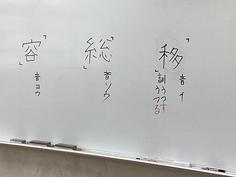 「移」
音 イ
訓 うつす
る
「総」
音 ソウ
「容」
音 ヨウ